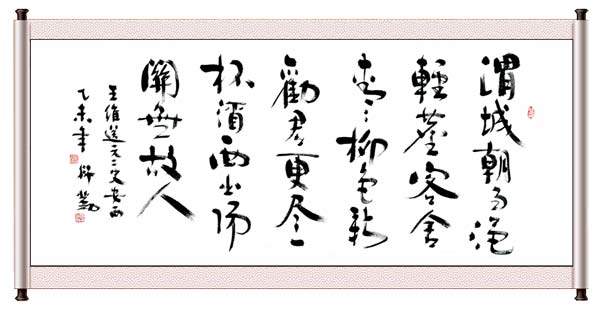 渭城朝雨浥
輕塵客舍
青々柳色新
勸君更尽一
杯酒西出陽
關無故人
王維送元二使安西
乙未年